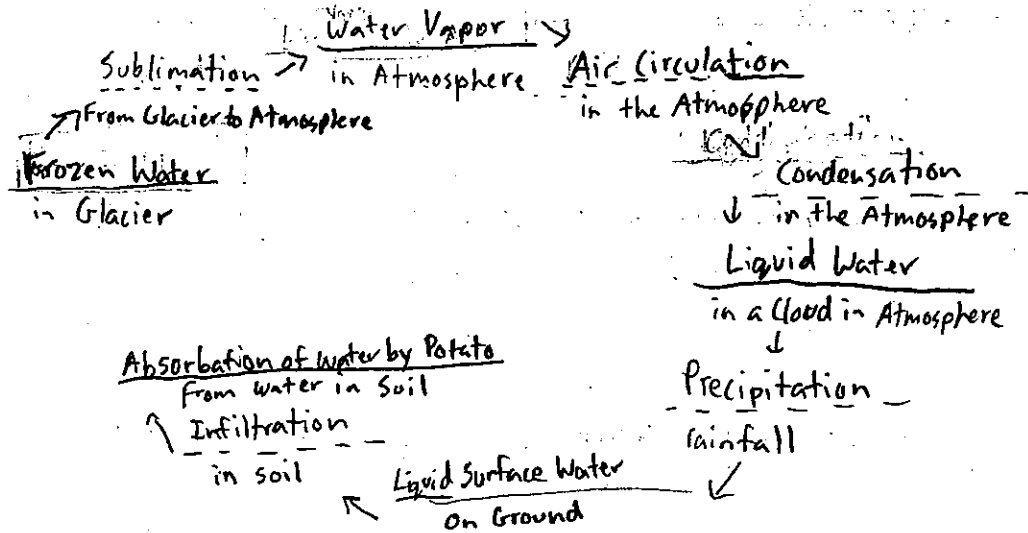 Frozen Water
in Glacier
Sublimation
From Glacier to Atmosplere
Water Vapor
in Atmosphere
Air Circulation
in the Atmosphere
Condensation
in the Atmosphere
Liquid Water
in a Cloud in Atmosphere
Precipitation
rainfall
Liquid Surface Water
on Ground
Infiltration
in soil
Absorbation of water by Potato
From water in Soil